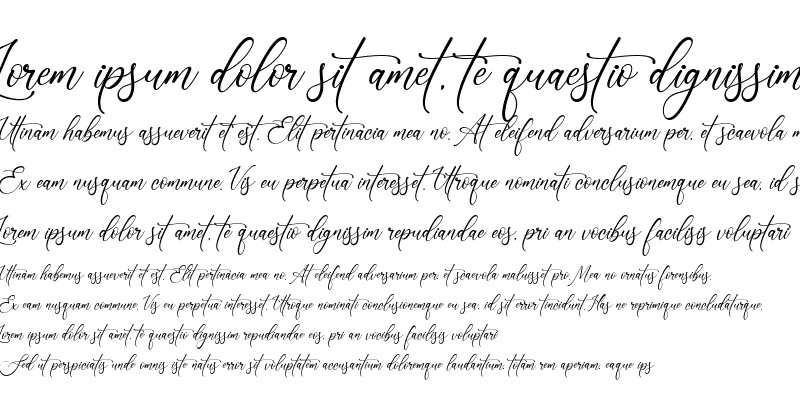 Lorem ipsum dolor sit amet, te quaestio dignissim
Uttinam habemus assueverit et est. Elit pertinacia mea no. At eleifend adversarium per, et scaevola m
Ex eam nusquam commune. Vis eu perpetua interesset. Utroque nominati conclusionemque eu sea, id s
Lorem ipsum dolor sit amet, te quaestio dignissim repudiandae eos, pri an vocibus facilisis voluptari
Utinam habemus assueverit et est. Elit pertinacia mea no. At eleifend adversarium per, et scaevola maluisset pro. Mea no ornatus forensibus.
Ex eam nusquam commune. Vis eu perpetua interesset. Utroque nominati conclusionemque eu sea, id sit error tincidunt. Has ne reprimique concludaturque.
Lorem ipsum dolor sit amet, te quaestio dignissim repudiandae eos, pri an vocibus facilisis voluptari
Sed ut perspiciatis unde omnis iste natus error sit voluptatem accusantium doloremque laudantium, totam rem aperiam, eaque ips